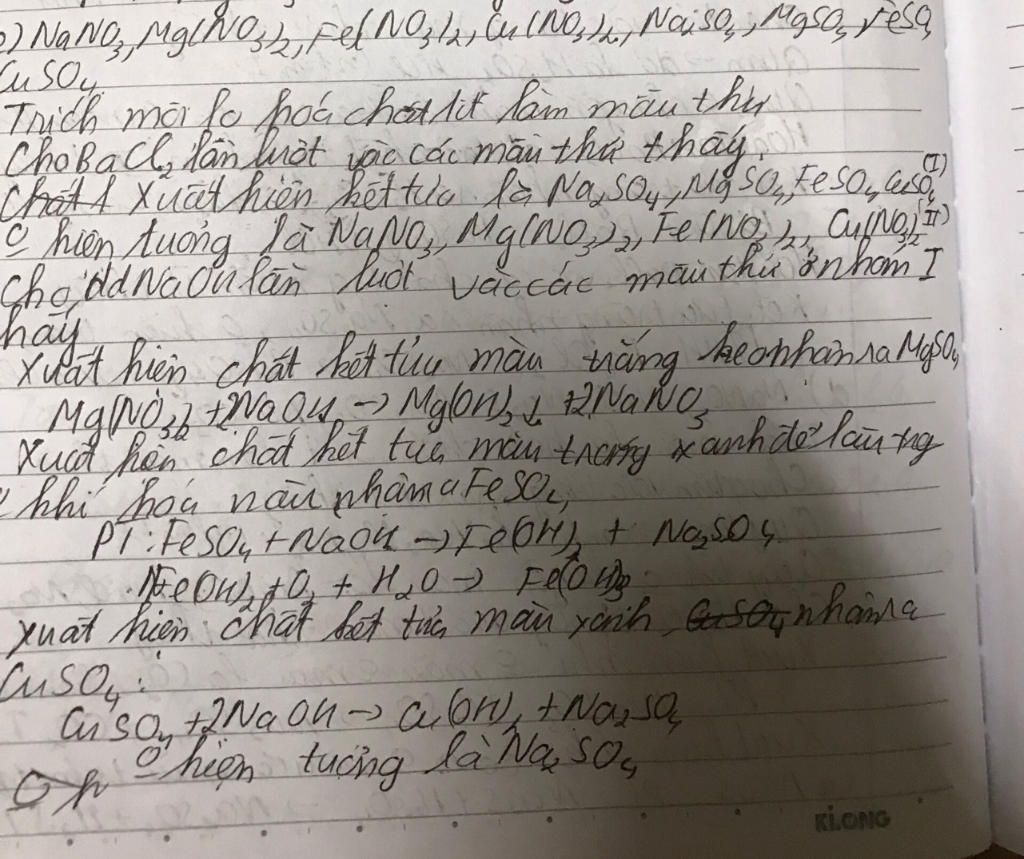 ) NaNO3, Mg(NO3)2, Fe(NO3)2, Cu(NO3)2, Na2SO4, MgSO4, FeSO4
CuSO4
Trích mỗi lọ hoá chất lit làm mẫu thử
Cho BaCl2 lần lượt vào các mẫu thử thấy.
Chất 1 Xuất hiện kết tủa là Na2SO4, MgSO4, FeSO4, CuSO4 (I)
O hiện tượng là NaNO3, Mg(NO3)2, Fe(NO3)2, Cu(NO3)2 (II)
Cho dd NaOH lần lượt vào các mẫu thử ở nhóm I
hấy
Xuất hiện chất kết tủa màu trắng keo nhận ra MgSO4
Mg(NO3)2 + 2NaOH → Mg(OH)2↓ + 2NaNO3
Xuất hiện chất kết tủa màu trắng xanh để lâu
khí hoá nâu nhận ra FeSO4
PT: FeSO4 + NaOH → Fe(OH)2 + Na2SO4
Fe(OH)2 + O2 + H2O → Fe(OH)3
Xuất hiện chất kết tủa màu xanh nhận ra
CuSO4:
CuSO4 + 2NaOH → Cu(OH)2 + Na2SO4
O hiện tượng là Na2SO4
KLONG